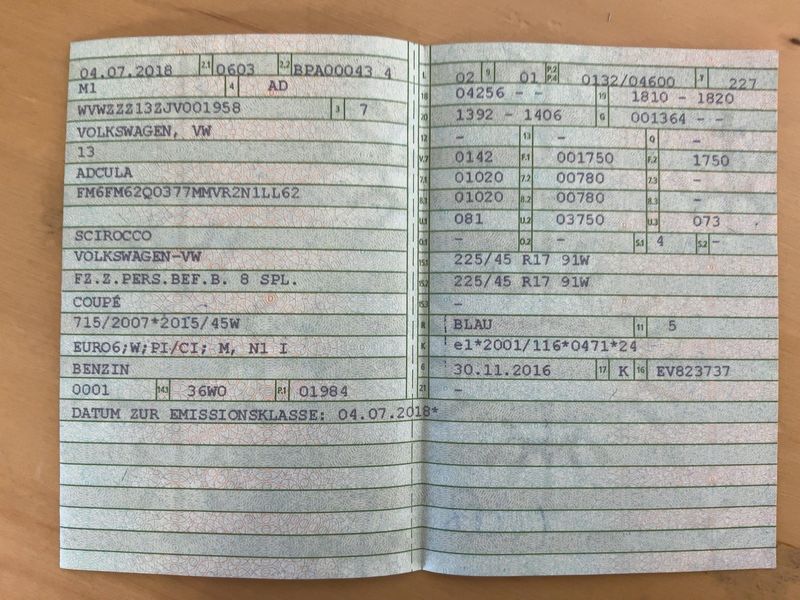 04.07.2018 2.1 0603 2.2 BPA00043 4
M1 4 AD
WVWZZZ13ZJV001958 3 7
VOLKSWAGEN, VW
13
ADCULA
FM6FM62Q0377MMVR2N1LL62
SCIROCCO
VOLKSWAGEN-VW
FZ.Z.PERS.BEF.B. 8 SPL.
COUPÉ
715/2007*2015/45W
EURO6;W;PI/CI; M, N1 I
BENZIN
0001 14.1 36W0 P.1 01984
DATUM ZUR EMISSIONSKLASSE: 04.07.2018*
L 02 9 01 P.2 P.4 0132/04600 T 227
18 04256 - - 19 1810 - 1820
20 1392 - 1406 G 001364 - -
12 - 13 - Q -
V.7 0142 F.1 001750 F.2 1750
7.1 01020 7.2 00780 7.3 -
8.1 01020 8.2 00780 8.3 -
U.1 081 U.2 03750 U.3 073
O.1 - O.2 - S.1 4 S.2 -
15.1 225/45 R17 91W
15.2 225/45 R17 91W
15.3 -
R BLAU 11 5
K e1*2001/116*0471*24
6 30.11.2016 17 K 16 EV823737
21 -